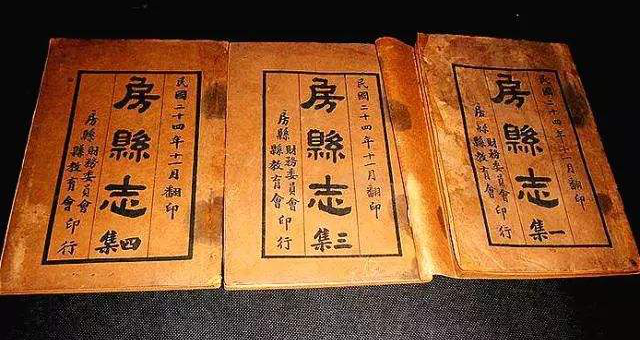 民國二十四年十一月翻印
房縣志
一集
房縣財務委員會
縣教育會印行
民國二十四年十一月翻印
房縣志
三集
房縣財務委員會
縣教育會印行
民國二十四年十一月翻印
房縣志
四集
房縣財務委員會
縣教育會印行